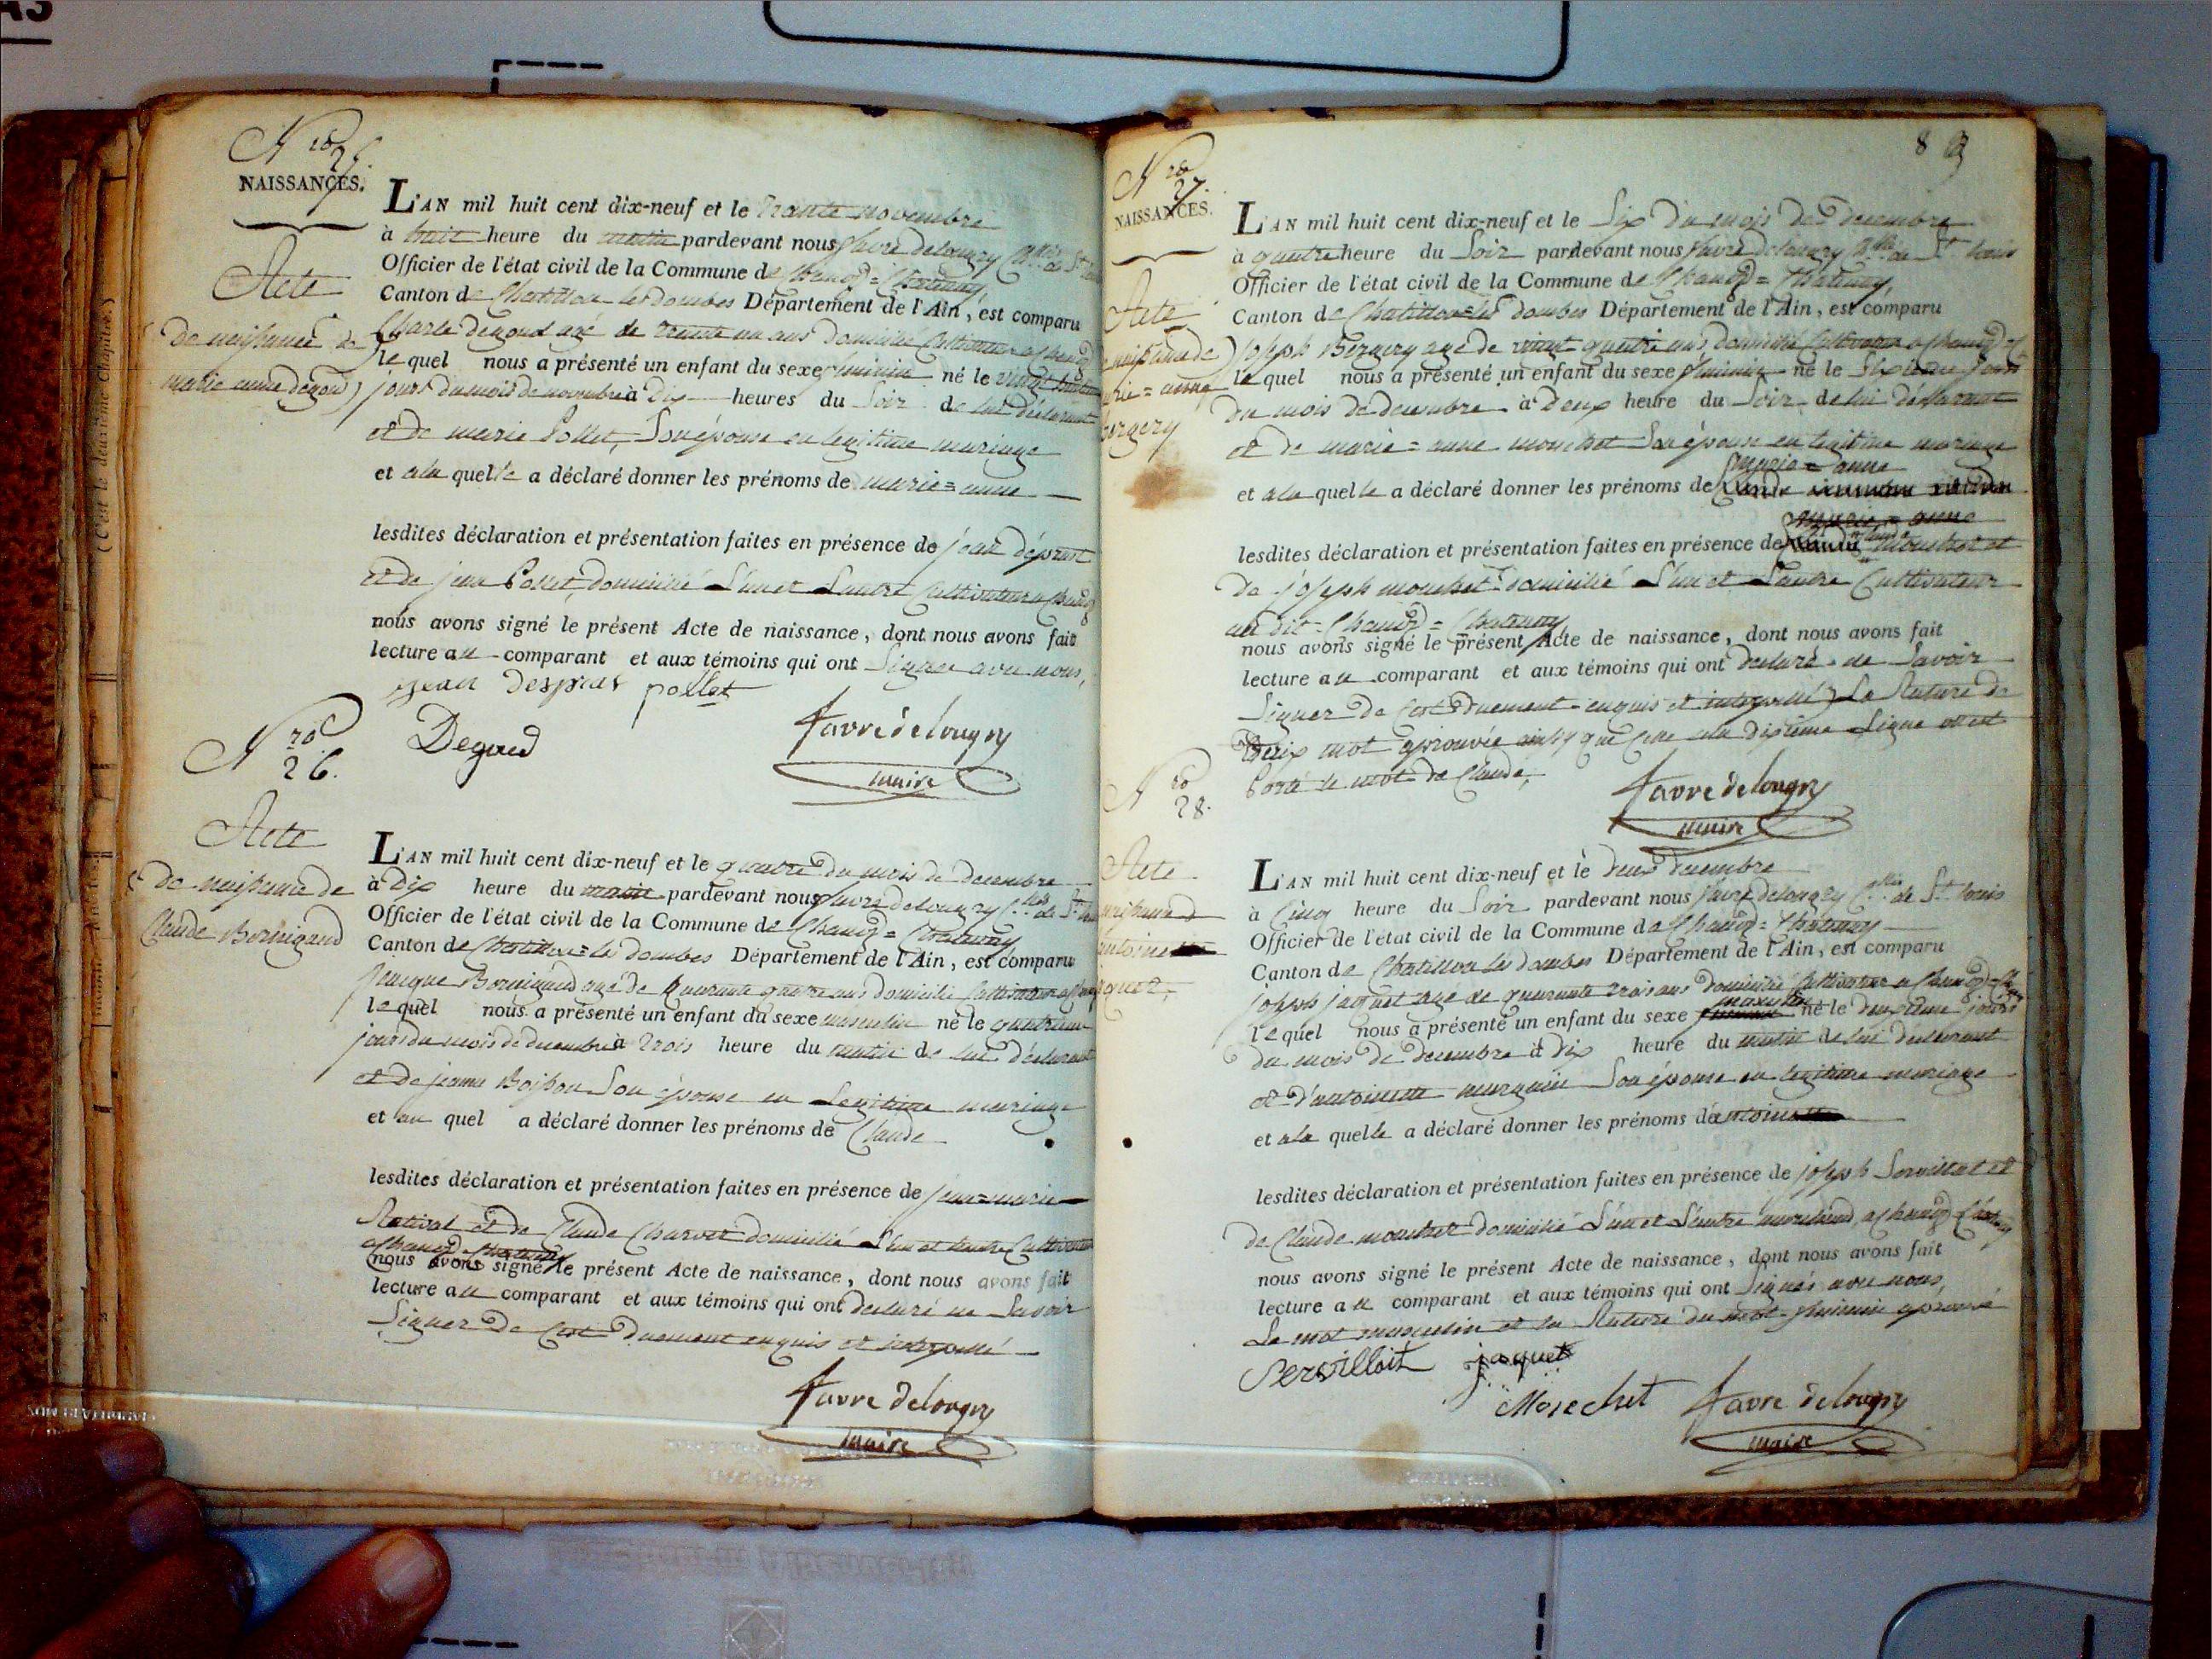 N ro 25.
NAISSANCES.
Acte
de naissance de
marie anne degoud
L'AN mil huit cent dix-neuf et le trante novembre
à huit heure du matin pardevant nous favre delongry Ch.les de St
Officier de l'état civil de la Commune de Chanoz=Chatenay,
Canton de Chatillon les dombes Département de l'Ain, est comparu
Charle degoud agé de trente un ans domicilié Cultivateur a Chanoz
lequel nous a présenté un enfant du sexe féminin né le vingt
jour du mois de novembre à dix heures du Soir de lui déclarant
et de marie Pollet, Son épouse en legitime mariage
et ala quelle a déclaré donner les prénoms de marie=anne
lesdites déclaration et présentation faites en présence de jean déprast
et de jean Pollet, domicilié L'un et Lautre Cultivateur a Chanoz
nous avons signé le présent Acte de naissance, dont nous avons fait
lecture au comparant et aux témoins qui ont Signer avec nous,
jean Despras pollet
Degoud
favre delongry
maire
N ro 26.
Acte
de naissance de
Claude Bornigaud
L'AN mil huit cent dix-neuf et le quatre du mois de decembre
à Dix heure du matin pardevant nous favre delongry Ch.les de St
Officier de l'état civil de la Commune de Chanoz=Chatenay
Canton de Chatillon=les dombes Département de l'Ain, est comparu
Jacque Bornigaud agé de quarante quatre ans domicilié Cultivateur a
lequel nous a présenté un enfant du sexe masculin né le quatrieme
jour du mois de decembre à trois heure du matin de lui déclarant
et de jeanne Boisson Son épouse en Legitime mariage
et au quel a déclaré donner les prénoms de Claude
lesdites déclaration et présentation faites en présence de jean=marie
et de Claude Charvet domicilié L'un et lautre Cultivateur
a Chanoz=Chatenay
nous avons signé le présent Acte de naissance, dont nous avons fait
lecture au comparant et aux témoins qui ont declaré ne Savoir
Signer de Cest Duement enquis et interpellé
favre delongry
maire
8
N ro 27.
NAISSANCES.
Acte
naissance de
marie=anne
bergery
L'AN mil huit cent dix-neuf et le Six du mois de decembre
à quatre heure du Soir pardevant nous favre delongry Ch.les de St louis
Officier de l'état civil de la Commune de Chanoz=Chatenay,
Canton de Chatillon=les dombes Département de l'Ain, est comparu
Joseph Bergery age de vingt quatre ans domicilié Cultivateur a Chanoz=
lequel nous a présenté un enfant du sexe féminin né le Sixieme jour
du mois de decembre à Deux heure du Soir de lui déclarant
et de marie=anne mouchet Son épouse en legitime mariage
marie=anne
et ala quelle a déclaré donner les prénoms de
marie=anne
lesdites déclaration et présentation faites en présence de Claude mouchet et
de joseph mouchet domicilié L'un et Lautre Cultivateur
au dit=Chanoz=Chatenay
nous avons signé le présent Acte de naissance, dont nous avons fait
lecture au comparant et aux témoins qui ont declaré ne Savoir
Signer de Cest Duement enquis et interpellé La Rature de
Deux mot aprouvée ainsy que Celle ala dixieme Ligne ou est
Porté le mot de Claude,
favre delongry
maire
N ro 28.
Acte
naissance d
antoine
jaquet
L'AN mil huit cent dix-neuf et le deux decembre
à Cinq heure du Soir pardevant nous favre delongry Ch.les de St louis
Officier de l'état civil de la Commune de Chanoz=Chatenay
Canton de Chatillon les dombes Département de l'Ain, est comparu
joseph jaquet agé de quarante trois ans domicilié Cultivateur a Chanoz=
masculin
lequel nous a présenté un enfant du sexe feminin né le deuxieme jour
du mois de decembre à dix heure du matin de lui declarant
et d'antoinette Son épouse en legitime mariage
et ala quelle a déclaré donner les prénoms d'antoine
lesdites déclaration et présentation faites en présence de joseph Servillat et
de Claude mouchet domicilié L'un et L'autre marchand a Chanoz
nous avons signé le présent Acte de naissance, dont nous avons fait
lecture au comparant et aux témoins qui ont Signés avec nous,
Le mot masculin et la Rature du mot=feminin aprouvé
Servilloit jaquet
Mouchet favre delongry
maire